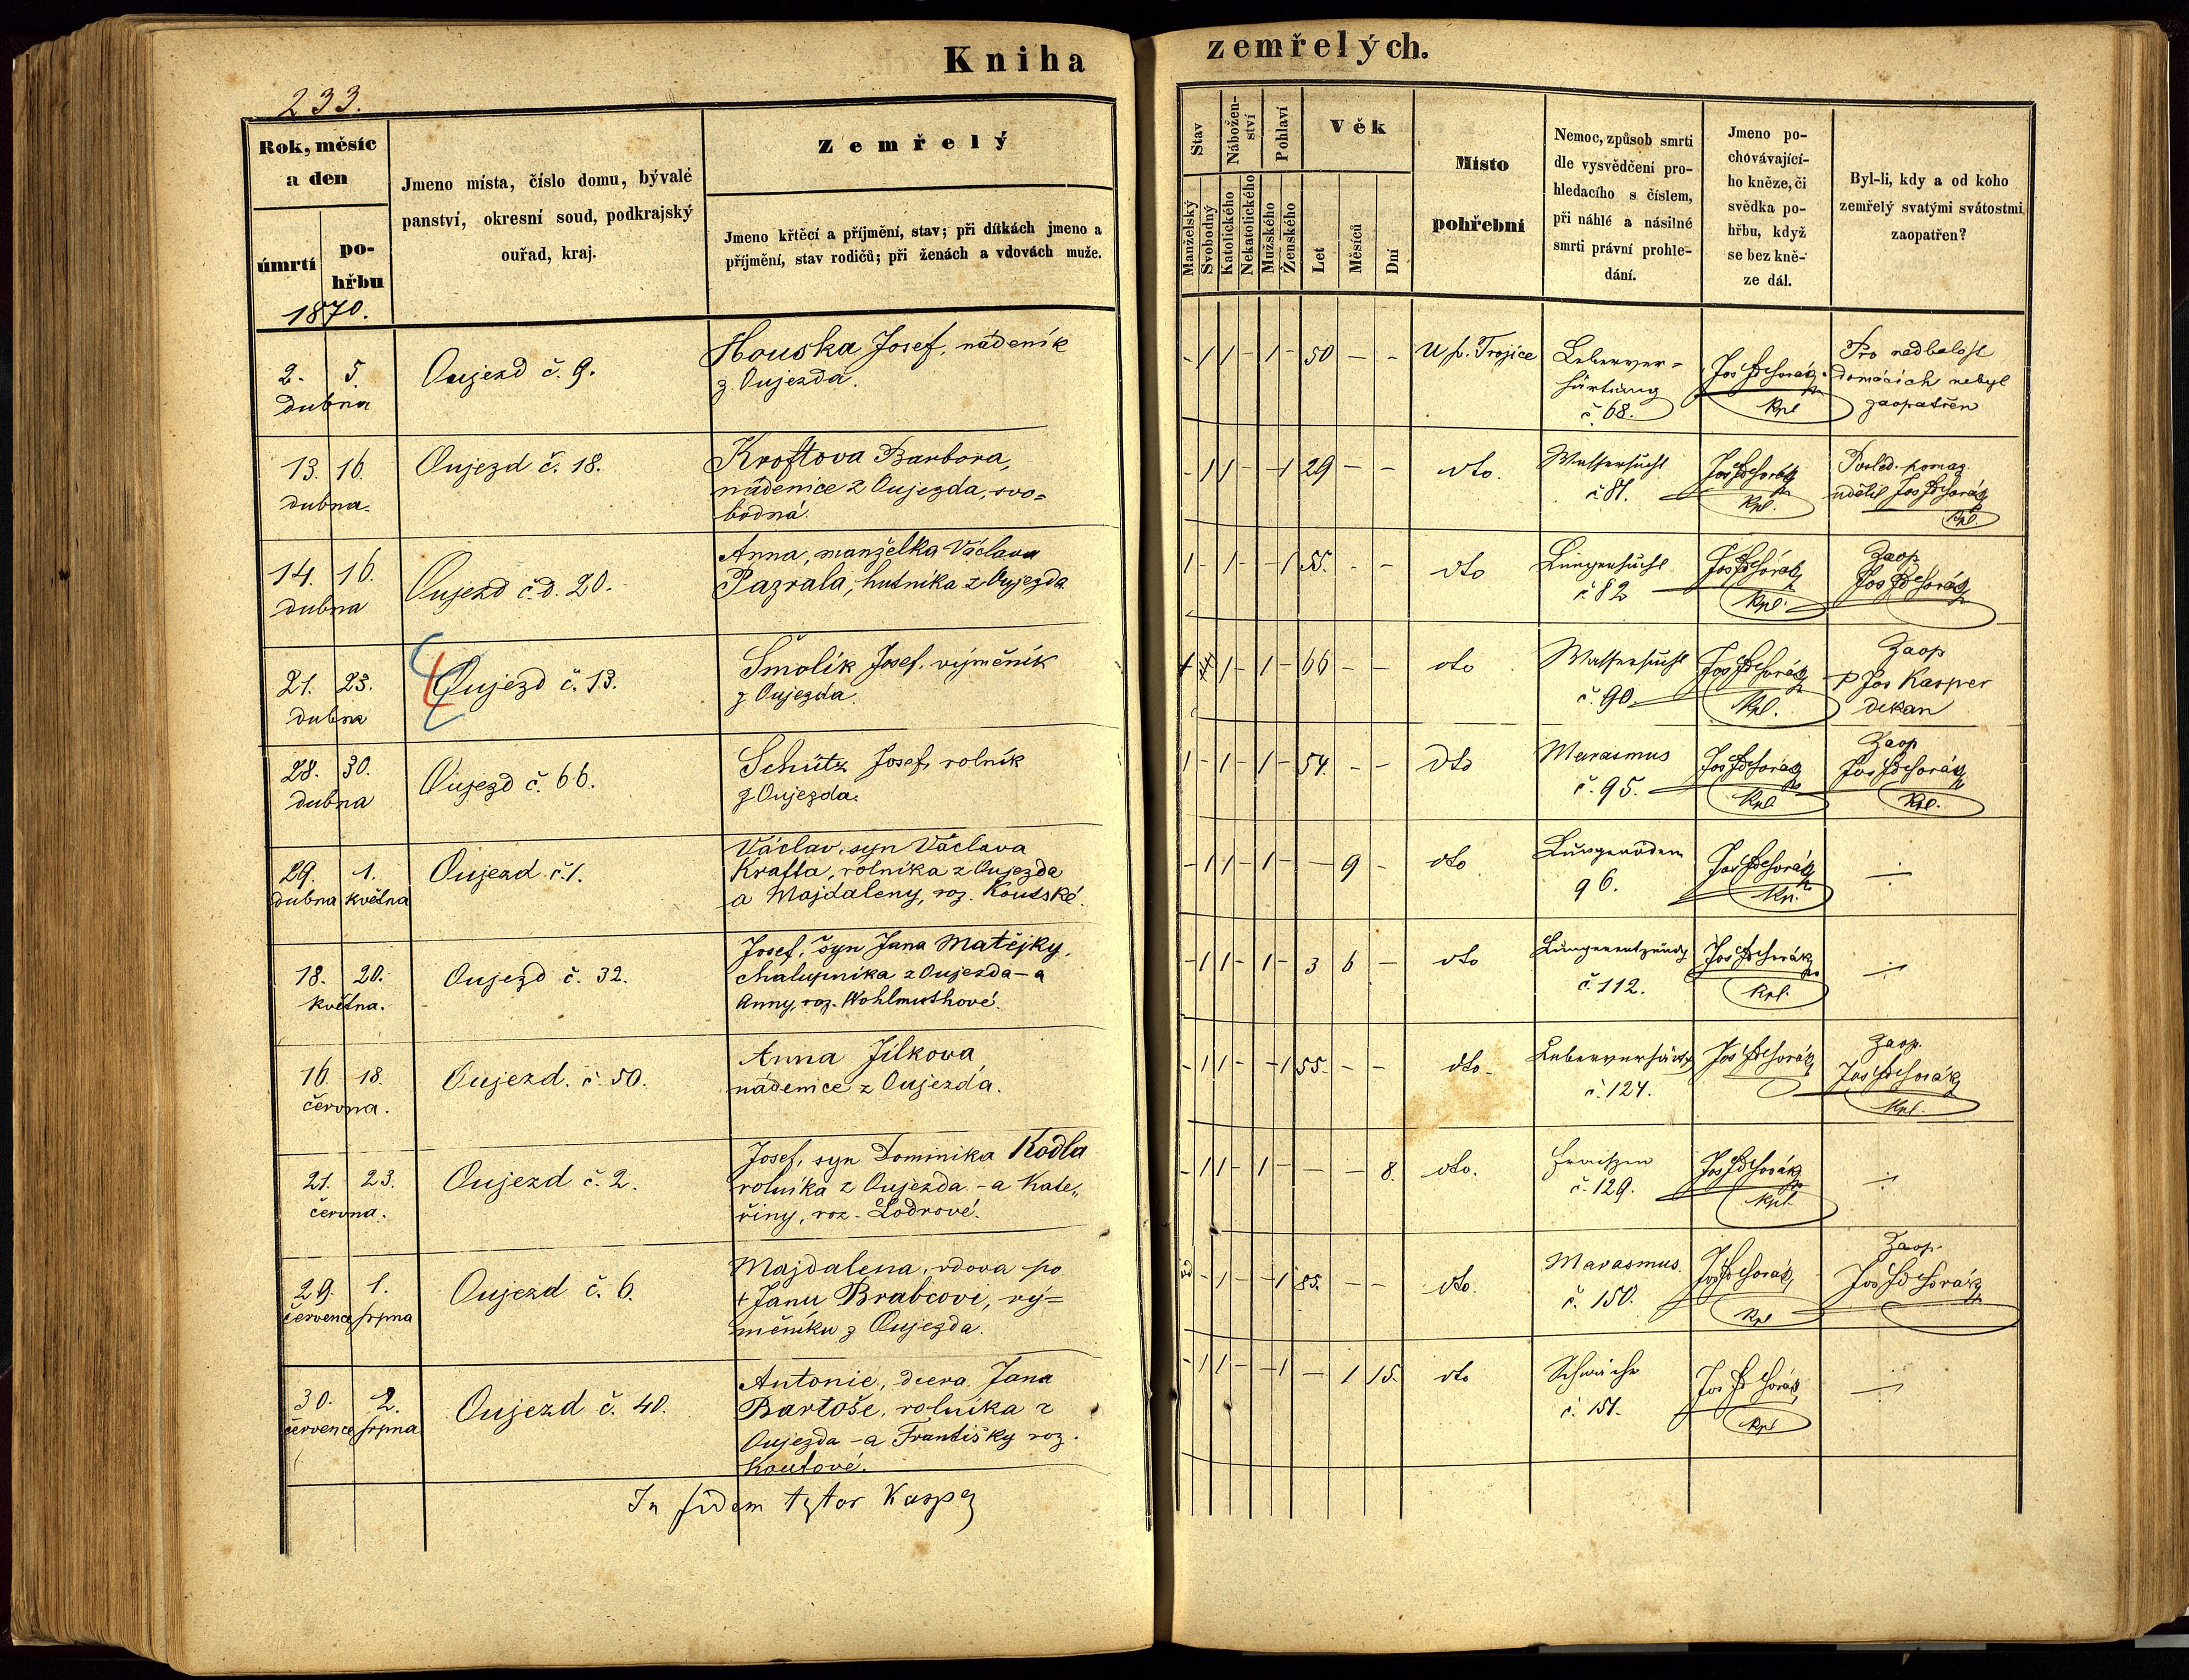 Kniha zemřelých.
233.
Rok, měsíc
a den
úmrtí
po-
hřbu
1870.
Jmeno místa, číslo domu, bývalé
panství, okresní soud, podkrajský
ouřad, kraj.
Zemřelý
Jmeno křtěcí a příjmění, stav; při dítkách jmeno a
příjmění, stav rodičů; při ženách a vdovách muže.
Stav
Manželský
Svobodný
Nábožen-
ství
Katolického
Nekatolického
Pohlaví
Mužského
Ženského
Věk
Let
Měsíců
Dní
Místo
pohřební
Nemoc, způsob smrti
dle vysvědčení pro-
hledacího s číslem,
při náhlé a násilné
smrti právní prohle-
dání.
Jmeno po-
chovávající-
ho kněze, či
svědka po-
hřbu, když
se bez kně-
ze dál.
Byl-li, kdy a od koho
zemřelý svatými svátostmi
zaopatřen?
2. 5.
dubna
Oujezd č. 9.
Houska Josef, nádeník
z Oujezda.
- 1 1 - 1 - 50 - -
U sv. Trojice
Leberver=
härtung
č. 68.
Jos
Kpl
Pro nedbalost
domácích nebyl
zaopatřen
13. 16.
dubna.
Oujezd č. 18.
Kroftova Barbora,
nádenice z Oujezda, svo=
bodná.
- 1 1 - - 1 29 - -
dto.
Wassersucht
č 81.
Jos
Kpl.
Posled. pomaz.
udělil Jos
Kpl.
14. 16.
dubna
Oujezd č.d. 20.
Anna, manželka Václava
Pazrala, hutníka z Oujezda.
1 - 1 - - 1 55. - -
dto
Lungensucht
č 82
Jos
Kpl.
Zaop
Jos
21. 23.
dubna
Oujezd č. 13.
Šmolík Josef, výměník
z Oujezda.
1 - 1 - 66 - -
dto
Wassersucht
č. 90.
Jos
Kpl.
Zaop
P Jos Kasper
děkan
28. 30.
dubna
Oujezd č. 66.
Schütz Josef, rolník
z Oujezda.
1 - 1 - 1 - 54. - -
dto
Marasmus
č. 95.
Jos
Kpl
Zaop
Jos
Kpl.
29. 1.
dubna května
Oujezd č. 1.
Václav, syn Václava
Krafta, rolníka z Oujezda
a Majdaleny, roz. Koutské.
- 1 1 - 1 - - 9 -
dto
Lungenödem
96.
Jos
÷
18. 20.
května.
Oujezd č. 32.
Josef, syn Jana Matějky,
chalupníka z Oujezda - a
Anny, roz. Wohlmuthové.
- 1 1 - 1 - 3 6 -
dto
č. 112.
Jos
Kpl.
÷
16. 18.
června.
Oujezd. č. 50.
Anna Jílkova,
nádenice z Oujezda.
- 1 1 - - 1 55. - -
dto-
č. 124.
Jos
Zaop.
Jos
Kpl.
21. 23.
června.
Oujezd č. 2.
Josef, syn Dominika Kodla
rolníka z Oujezda - a Kate„
řiny, roz. Lodrové.
- 1 1 - 1 - - - 8.
dto.
Fraisen
č. 129.
Jos
Kpl.
÷
29. 1.
července srpna
Oujezd č. 6.
Majdalena, vdova po
+ Janu Brabcovi, vý=
měníku z Oujezda.
- 1 - - 1 85. - -
dto.
Marasmus.
č. 150.
Jos
Kpl
Zaop.
Jos
30. 2.
července srpna
Oujezd č. 40.
Antonie, dcera Jana
Bartoše, rolníka z
Oujezda - a Františky roz.
Koutové.
- 1 1 - - 1 - 1 15.
dto
Schwäche
č. 151.
Jos
Kpl
÷
In fidem Kasper